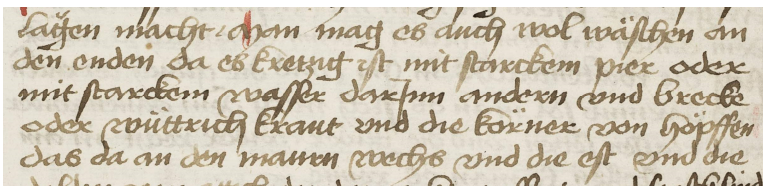 lagen macht Man mag es auch wol wäschen an
den enden da es kretzig ist mit starckem pier oder
mit starckem wasser darJnn andern vnd brecke
oder wüttrich kraut vnd die körner von höpffen
das da an den maurn wechs vnd die est vnd die